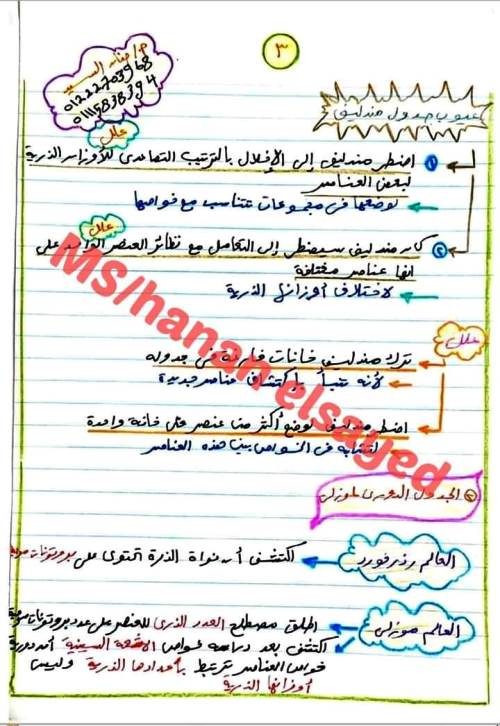 ٣
م/ حنان السيد
01222703968
01115838394
عيوب جدول مندليف
علل
① اضطر مندليف إلى الإخلال بالترتيب التصاعدى للأوزان الذرية
لبعض العناصر
لوضعها فى مجموعات تتناسب مع خواصها
علل
② كان مندليف سيضطر إلى التعامل مع نظائر العنصر الواحد على
أنها عناصر مختلفة
لاختلاف أوزانها الذرية
علل
ترك مندليف خانات فارغة فى جدوله
لأنه تنبأ بإكتشاف عناصر جديدة
اضطر مندليف لوضع أكثر من عنصر فى خانة واحدة
لتشابه فى الخواص بين هذه العناصر
الجدول الدورى لموزلى
العالم رذرفورد
اكتشف أن نواة الذرة تحتوى على بروتونات
العالم موزلى
اطلق مصطلح العدد الذرى للعنصر على عدد بروتونات
اكتشف بعد دراسة خواص الأشعة السينية أن دورية
خواص العناصر ترتبط بأعدادها الذرية وليس
أوزانها الذرية
MS/hanan elsayed